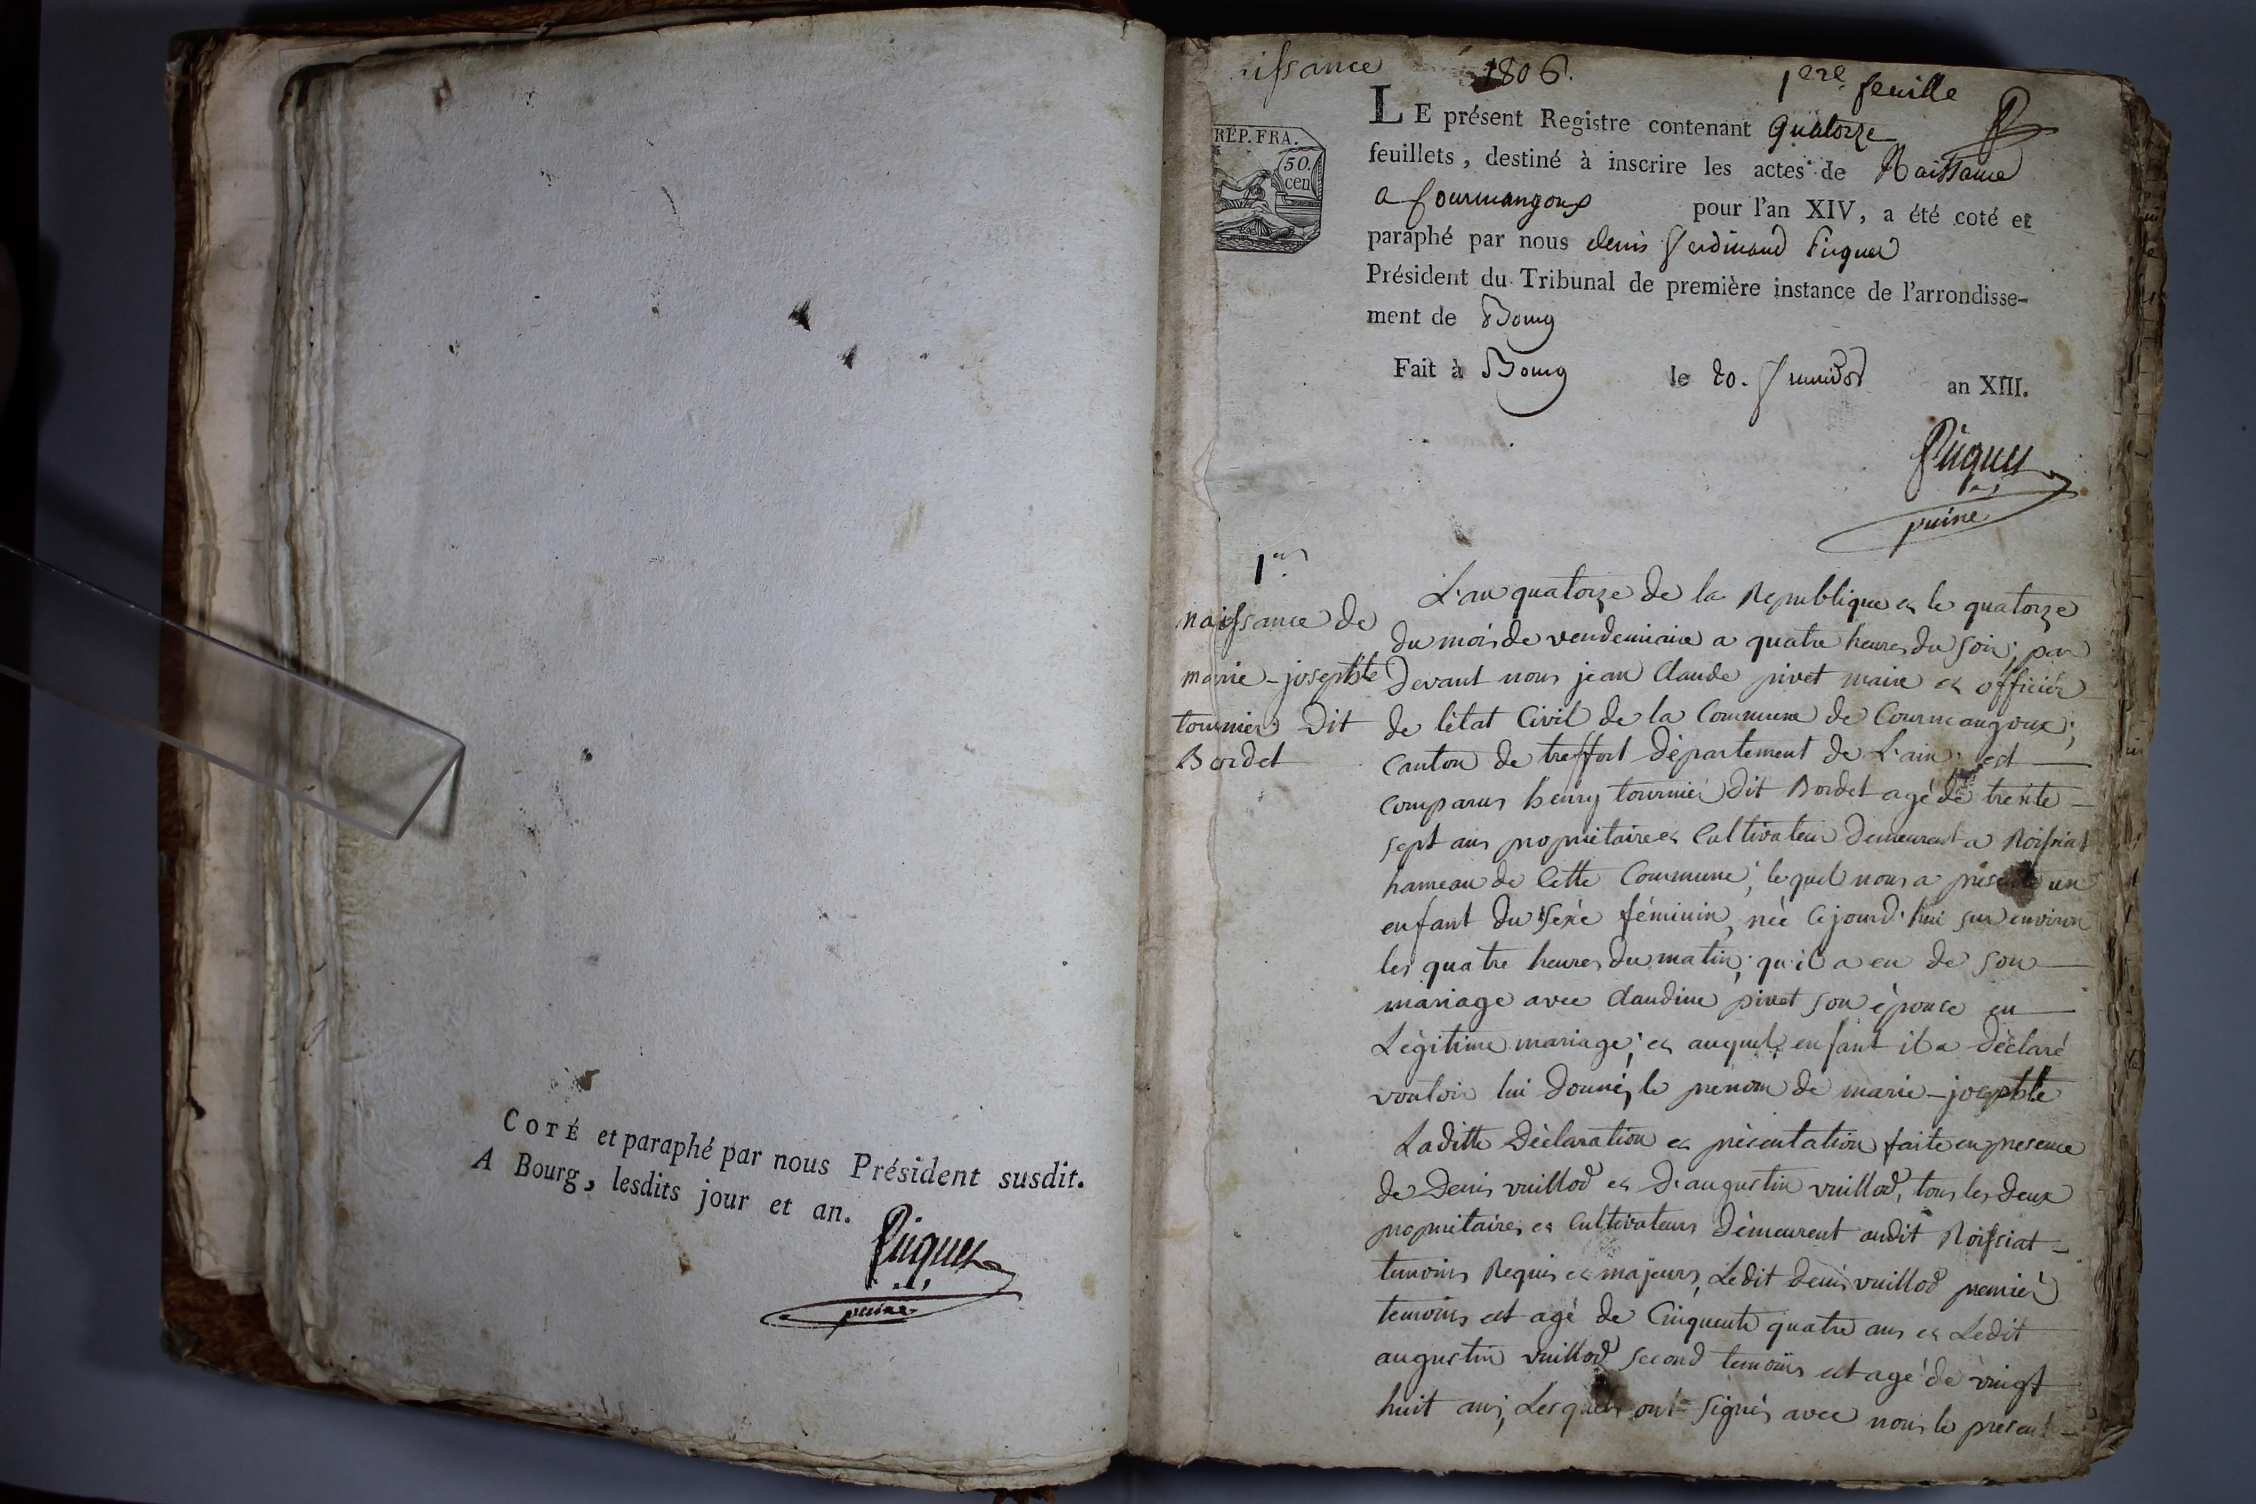 COTÉ et paraphé par nous Président susdit.
A Bourg, lesdits jour et an.
Piquet
puiné
issance 1806. 1ere feuille
REP. FRA.
50
cen
LE présent Registre contenant Quatorze
feuillets, destiné à inscrire les actes de Naissance
a Courmangoux pour l'an XIV, a été coté et
paraphé par nous denis ferdinand Piquet
Président du Tribunal de première instance de l'arrondisse-
ment de Bourg
Fait à Bourg le 20. fructidor an XIII.
Piquet
puiné
1er
naissance de
marie-josephte
tournier Dit
Bordet
L'an quatorze de la Republique et le quatorze
du mois de vendemiaire a quatre heures du soir; par
devant nous jean Claude pivet maire et officiér
de l'état Civil de la Commune de Courmangoux;
canton de treffort département de L'ain; est
comparus henry tourniér Dit Bordet agé de trente
sept ans propriétaire et Cultivateur demeurent a Roissiat
hameau de Cette Commune; lequel nous a présenté un
enfant du sexe féminin, née cejourd'hui sur environ
les quatre heures du matin; qu'il a eu de son
mariage avec Claudine pivet son épouse en
Légitime mariage; et auquel enfant il a déclaré
vouloir lui donné, le prenom de marie-josephte
Laditte Déclaration et présentation faite en presence
de Denis vuillod et d'augustin vuillod, tous les deux
propriétaires et Cultivateurs demeurent audit Roissiat
temoins Requis et majeurs, Ledit denis vuillod premiér
temoins est agé de Cinquente quatre ans et Ledit
augustin vuillod second temoins est agé de vingt
huit ans, Lesquels ont signés avec nous le présent